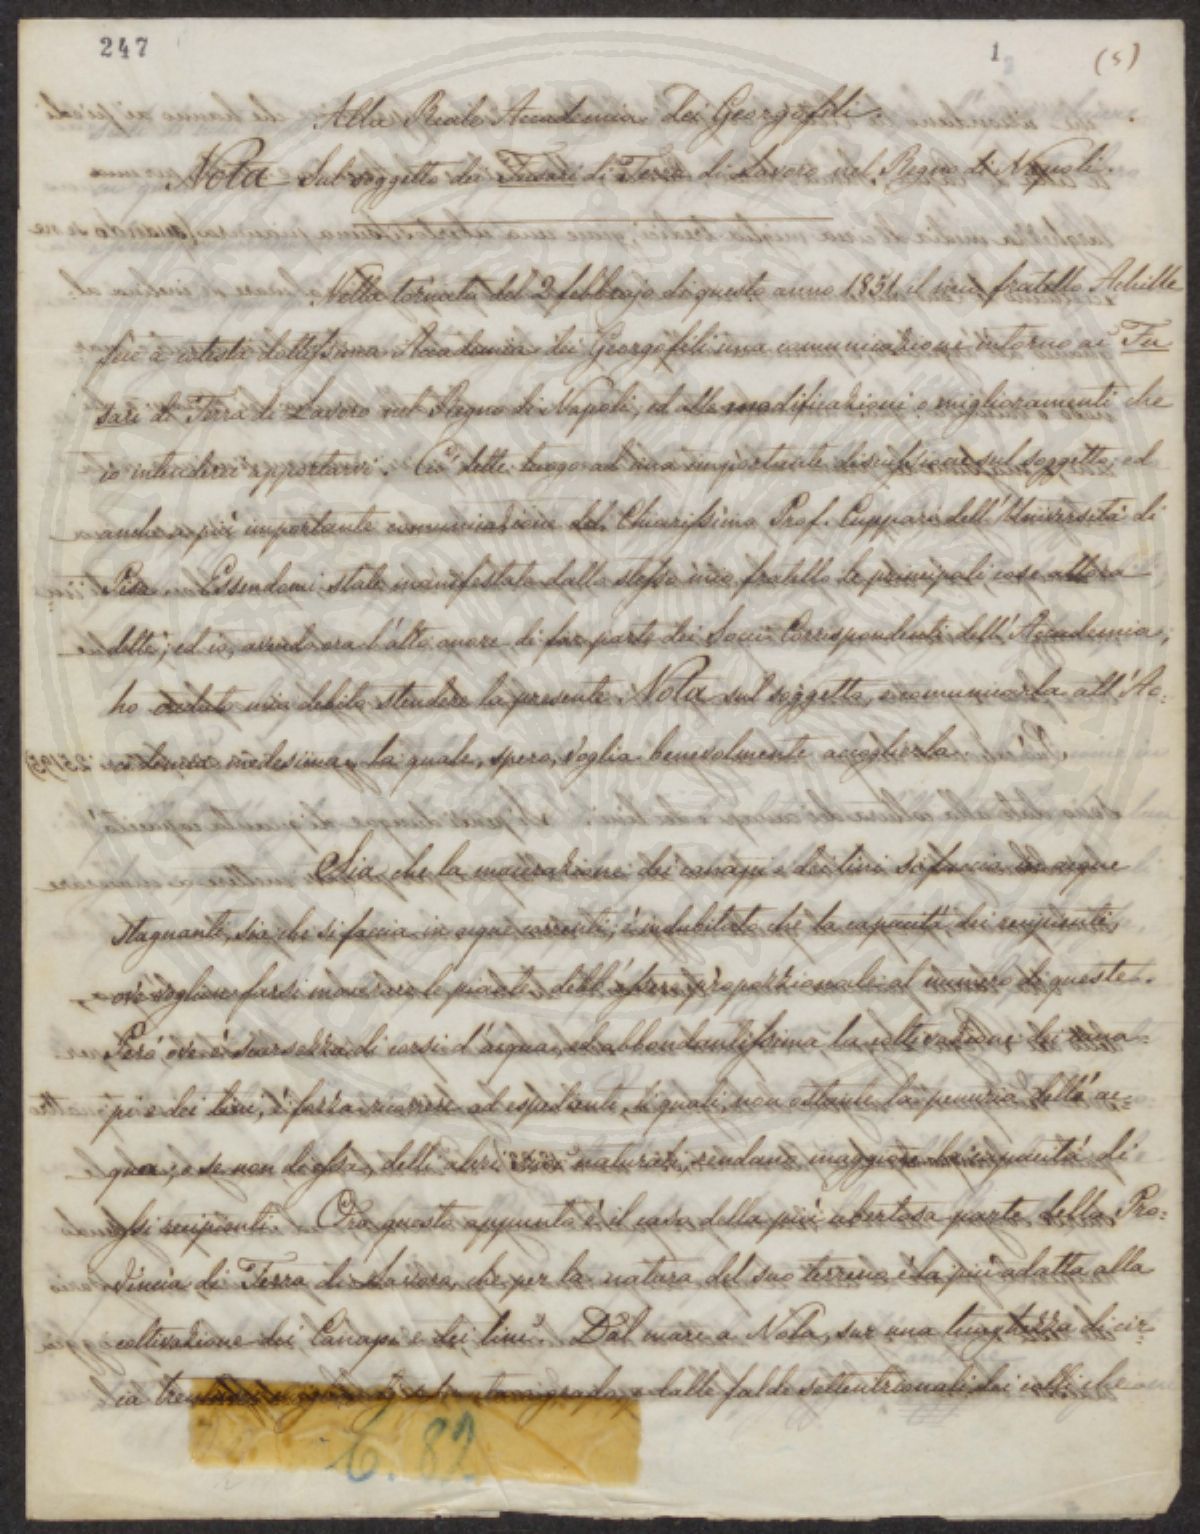 247
1
(5)
Alla Reale Accademia dei Georgofili.
Nota sul soggetto dei Fusari di Terra di Lavoro nel Regno di Napoli.
Nella tornata del 2 febbrajo di questo anno 1851, il mio fratello Achille
fece a cotesta dottissima Accademia dei Georgofili una comunicazione intorno ai Fu
sari di Terra di Lavoro nel Regno di Napoli, ed alle modificazioni e miglioramenti che
io intenderei apportarvi. Ciò dette luogo ad una importante discussione sul soggetto, ed
anche a più importante comunicazione del Chiarissimo Prof. Cuppari dell'Università di
Pisa. Essendomi state manifestate dallo stesso mio fratello le principali cose allora
dette; ed io, avendo ora l'alto onore di far parte dei Socii Corrispondenti dell'Accademia,
ho creduto mio debito stendere la presente Nota sul soggetto, e comunicarla all'Ac:
cademia medesima, la quale, spero, voglia benevolmente accoglierla.
Sia che la macerazione dei canapi e dei lini si faccia in acque
stagnanti, sia che si faccia in acque correnti, è indubitato che la capacità dei recipienti,
ove voglion farsi macerare le piante, debb'essere proporzionale al numero di queste.
Però ove è scarsezza di corsi d'acqua, ed abbondantissima la coltivazione dei cana=
pi e dei lini, è forza ricorrere ad espedienti, li quali, non ostante la penuria dell'ac=
qua, o se non di essa, delli alvei suoi naturali, rendano maggiore la capacità di
essi recipienti. Ora questo appunto è il caso della più ubertosa parte della Pro=
vincia di Terra di Lavoro, che per la natura del suo terreno è la più adatta alla
coltivazione dei Canapi e dei lini. Dal mare a Nola, sur una lunghezza di cir=
ca miglia e dalle falde settentrionali dei colli che
C. 82